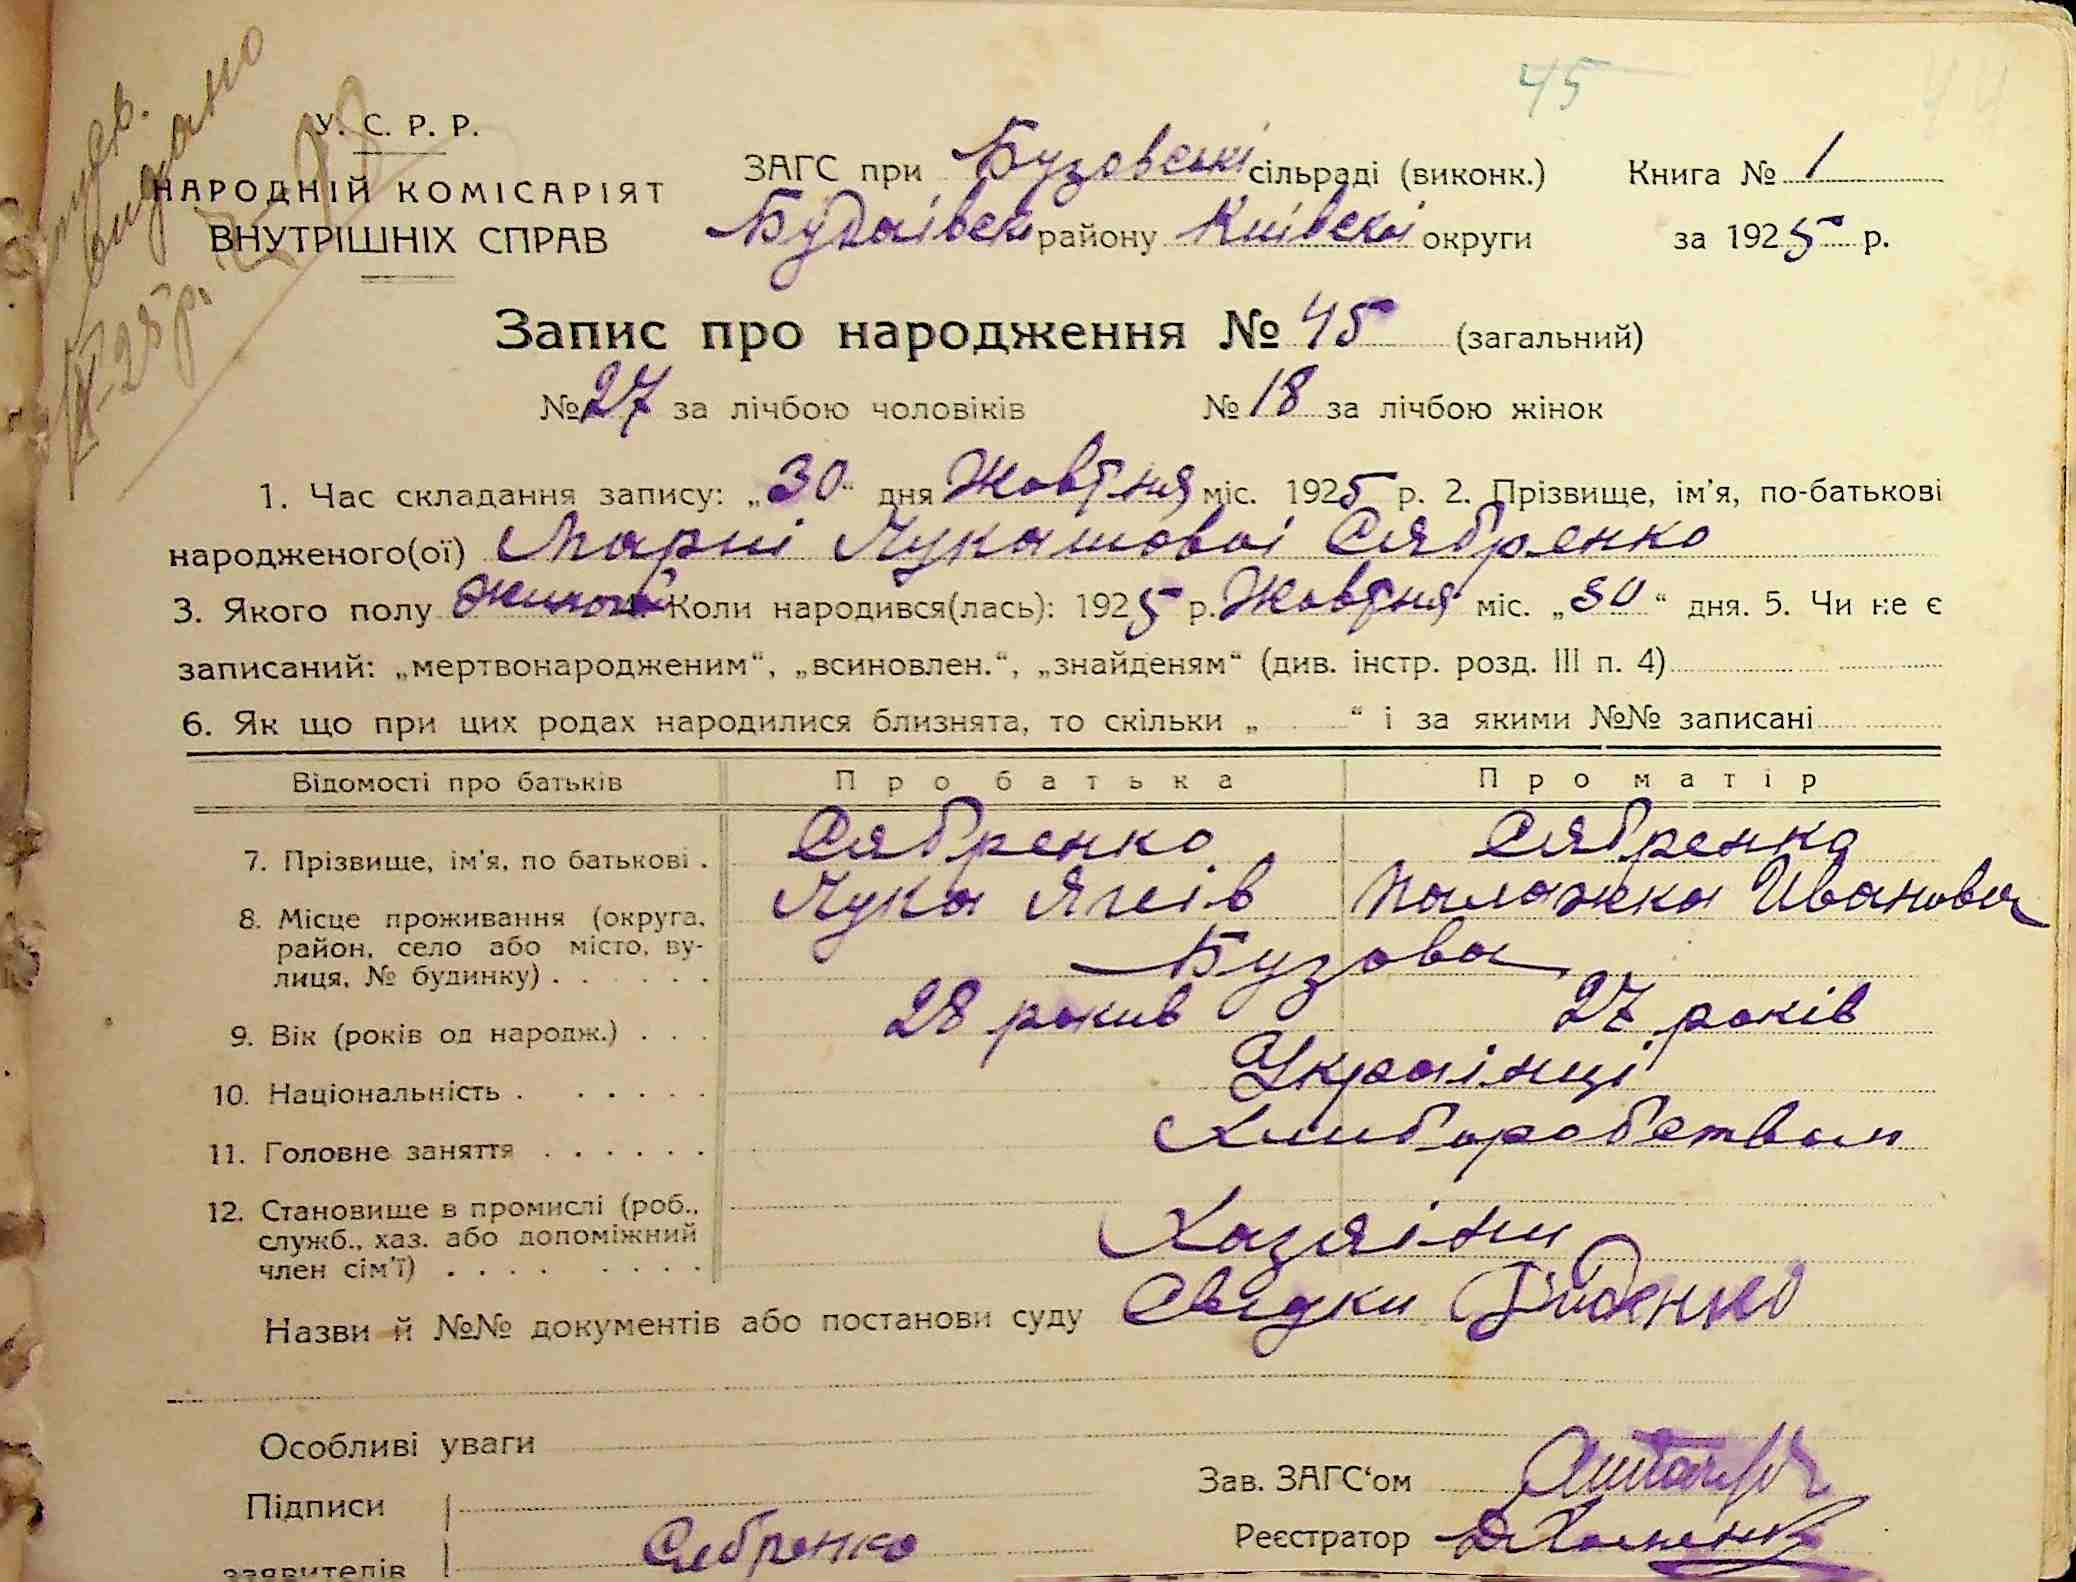 45
видано
У. С. Р. Р.
НАРОДНІЙ КОМІСАРІЯТ
ВНУТРІШНІХ СПРАВ
ЗАГС при Бузовські сільраді (виконк.) Книга № 1
Будаївськ району Київскі округи за 1925 р.
Запис про народження № 45 (загальний)
№ 27 за лічбою чоловіків № 18 за лічбою жінок
1. Час складання запису: „30“ дня Жовтня міс. 1925 р. 2. Прізвище, ім'я, по-батькові
народженого(ої) Марії Лукашовоі Сябренко
3. Якого полу Коли народився(лась): 1925 р. Жовтня міс. „30“ дня. 5. Чи не є
записаний: „мертвонародженим“, „всиновлен.“, „знайденям“ (див. інстр. розд. III п. 4)
6. Як що при цих родах народилися близнята, то скільки „ “ і за якими №№ записані
Відомості про батьків Про батька Про матір
7. Прізвище, ім'я, по батькові . Сябренко Сябренко
Лука Паложка Иванова
8. Місце проживання (округа, район, село або місто, вулиця, № будинку) . . . . . . Бузова
9. Вік (років од народж.) . . . 28 рокив 27 років
10. Національність . . . . . . Українці
11. Головне заняття . . . . . . Хлиборобством
12. Становище в промислі (роб., служб., хаз. або допоміжний член сім'ї) . . . . . . . . Хазяіни
Назви й №№ документів або постанови суду Свидки Диденко
Особливі уваги
Зав. ЗАГС'ом
Підписи
Реєстратор
заявителів Сябренко